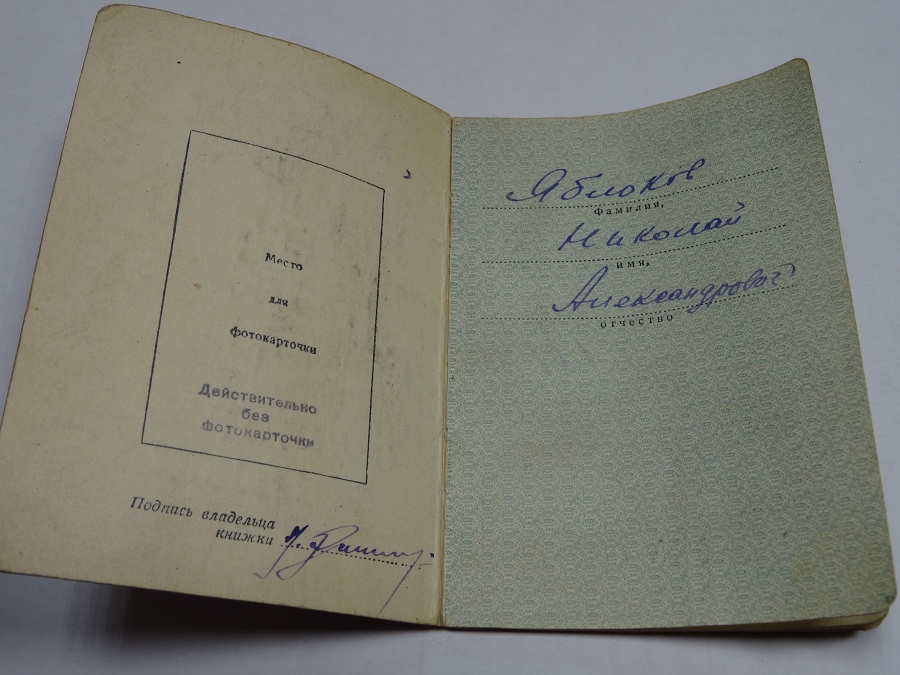 Место
для
фотокарточки
Действительно
без
фотокарточки
Подпись владельца
книжки
Яблоков
фамилия,
Николай
имя,
Александрович
отчество